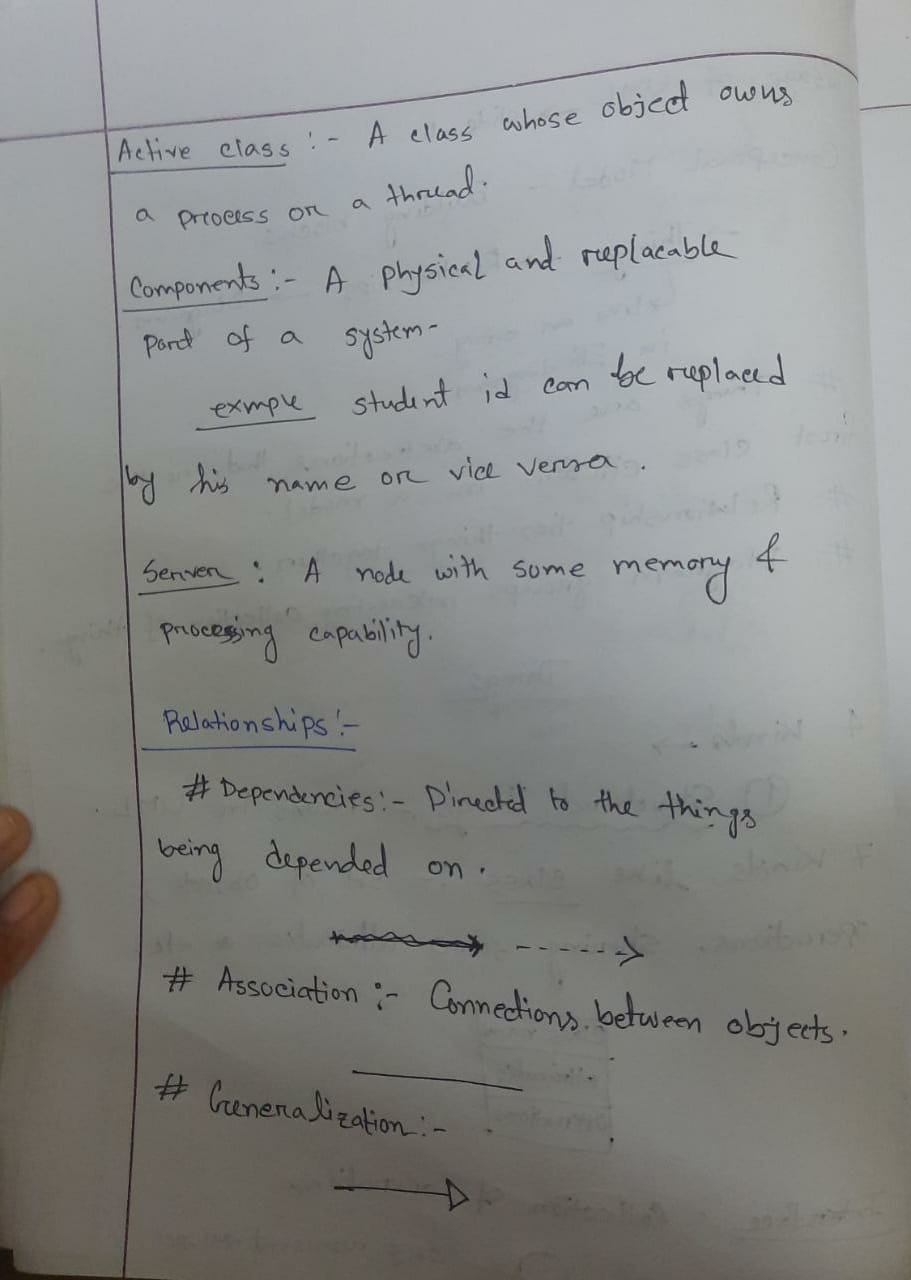 Active class :- A class whose object owns
a process or a thread.
Components :- A physical and replacable
part of a system-
exmple student id can be replaced
by his name or vice versa .
Server : A node with some memory &
processing capability.
Relationships :-
# Dependencies :- Directed to the things
being depended on .
# Association :- Connections between objects.
# Generalization :-